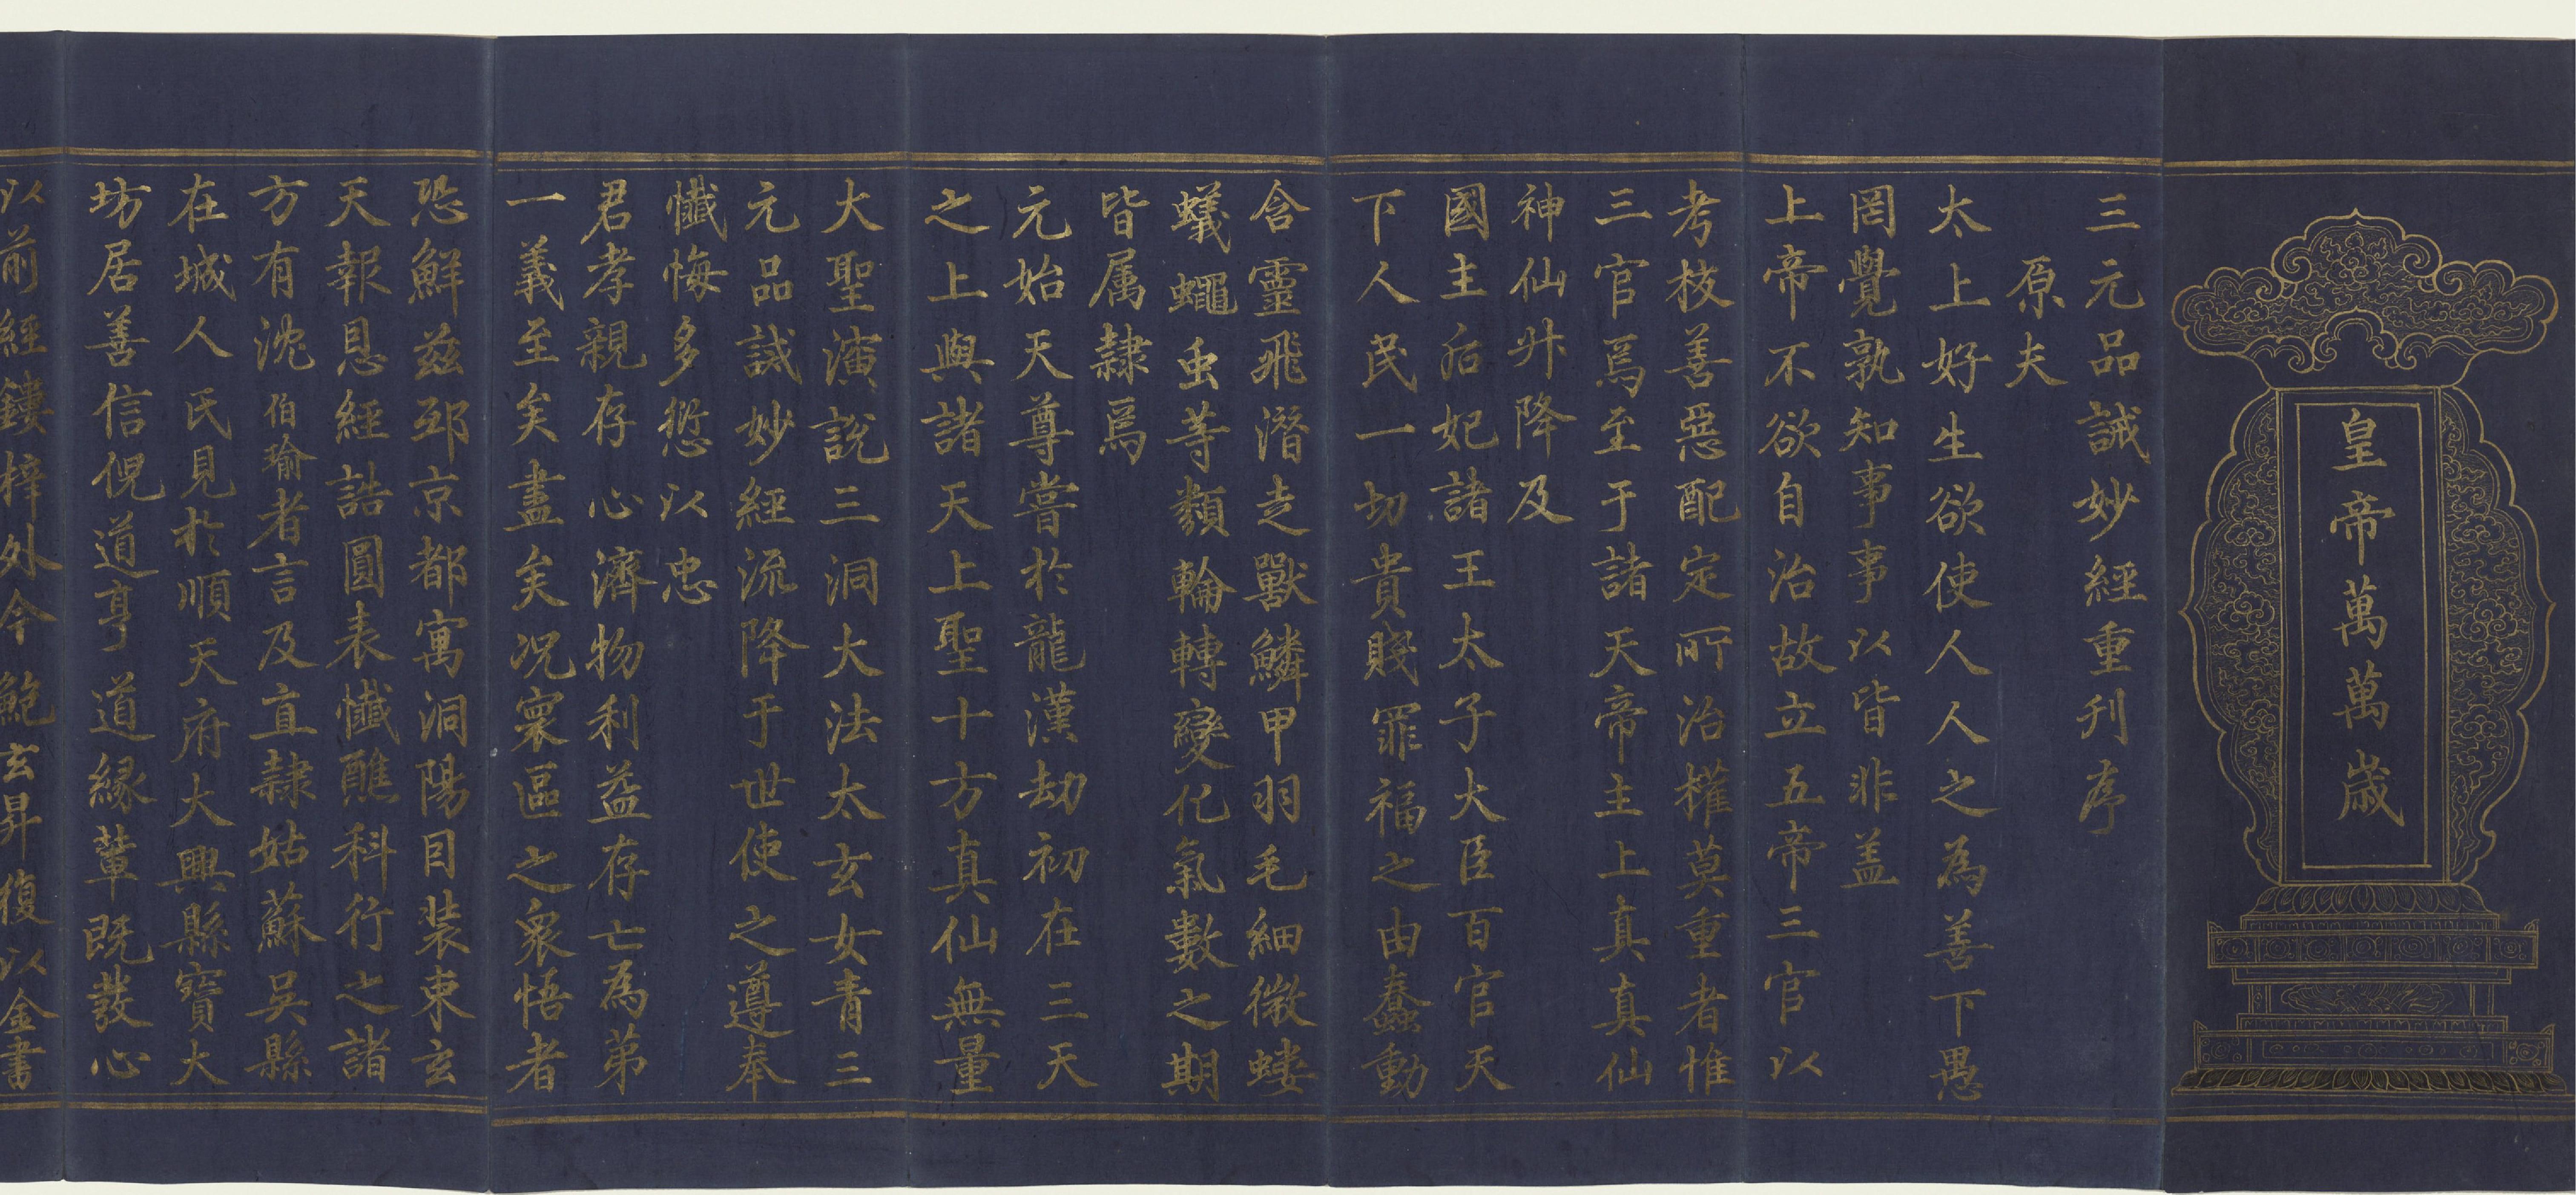 皇帝萬萬歲
三元品誡妙經重刋序
原夫
太上好生欲使人人之為善下愚
罔覺孰知事事以皆非盖
上帝不欲自治故立五帝三官以
考校善惡配定所治權莫重者惟
三官焉至于諸天帝主上真真仙
神仙升降及
國主后妃諸王太子大臣百官天
下人民一切貴賤罪福之由蠢動
含靈飛潛走獸鱗甲羽毛細微螻
蟻蠅虫等類輪轉變化氣數之期
皆属隸焉
元始天尊嘗於龍漢劫初在三天
之上與諸天上聖十方真仙無量
大聖演說三洞大法太玄女青三
元品誡妙經流降于世使之遵奉
懺悔多愆以忠
君孝親存心濟物利益存亡為第
一義至矣盡矣况寰區之衆悟者
恐鮮兹邳京都寓洞陽目装東玄
天報恩經誥圓表懺醮科行之諸
方有沈伯瑜者言及直隸姑蘇吳縣
在城人氏見於順天府大興縣寶大
坊居善信倪道亨道緣輩既發心
以前經鏤梓外今鮑玄昇復以金書